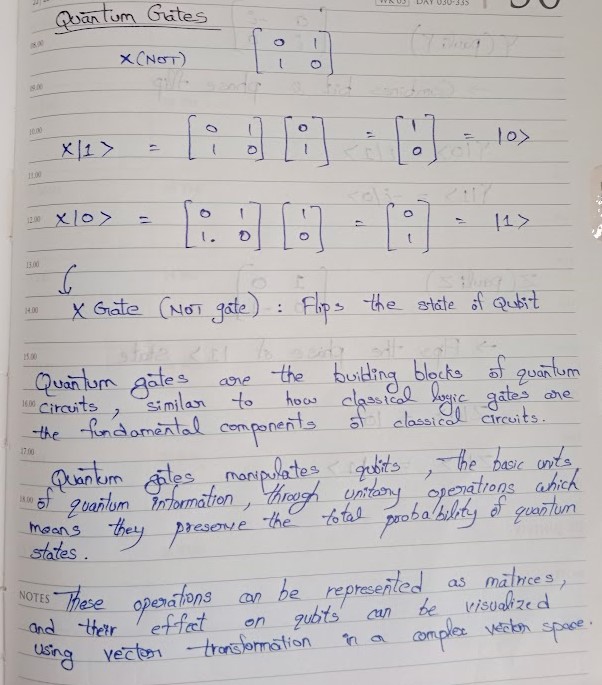 Quantum Gates
X(NOT) [0 1
1 0]
X|1> = [0 1
1 0] [0
1] = [1
0] = |0>
X|0> = [0 1
1. 0] [1
0] = [0
1] = |1>
X Gate (NOT gate) : Flips the state of Qubit
Quantum gates are the building blocks of quantum
circuits, similar to how classical logic gates are
the fundamental components of classical circuits.
Quantum gates manipulates qubits, the basic units
of quantum information, through unitary operations which
means they preserve the total probability of quantum
states.
NOTES These operations can be represented as matrices,
and their effect on qubits can be visualized
using vector transformation in a complex vector space.
08.00
09.00
10.00
11.00
12.00
13.00
14.00
15.00
16.00
17.00
18.00